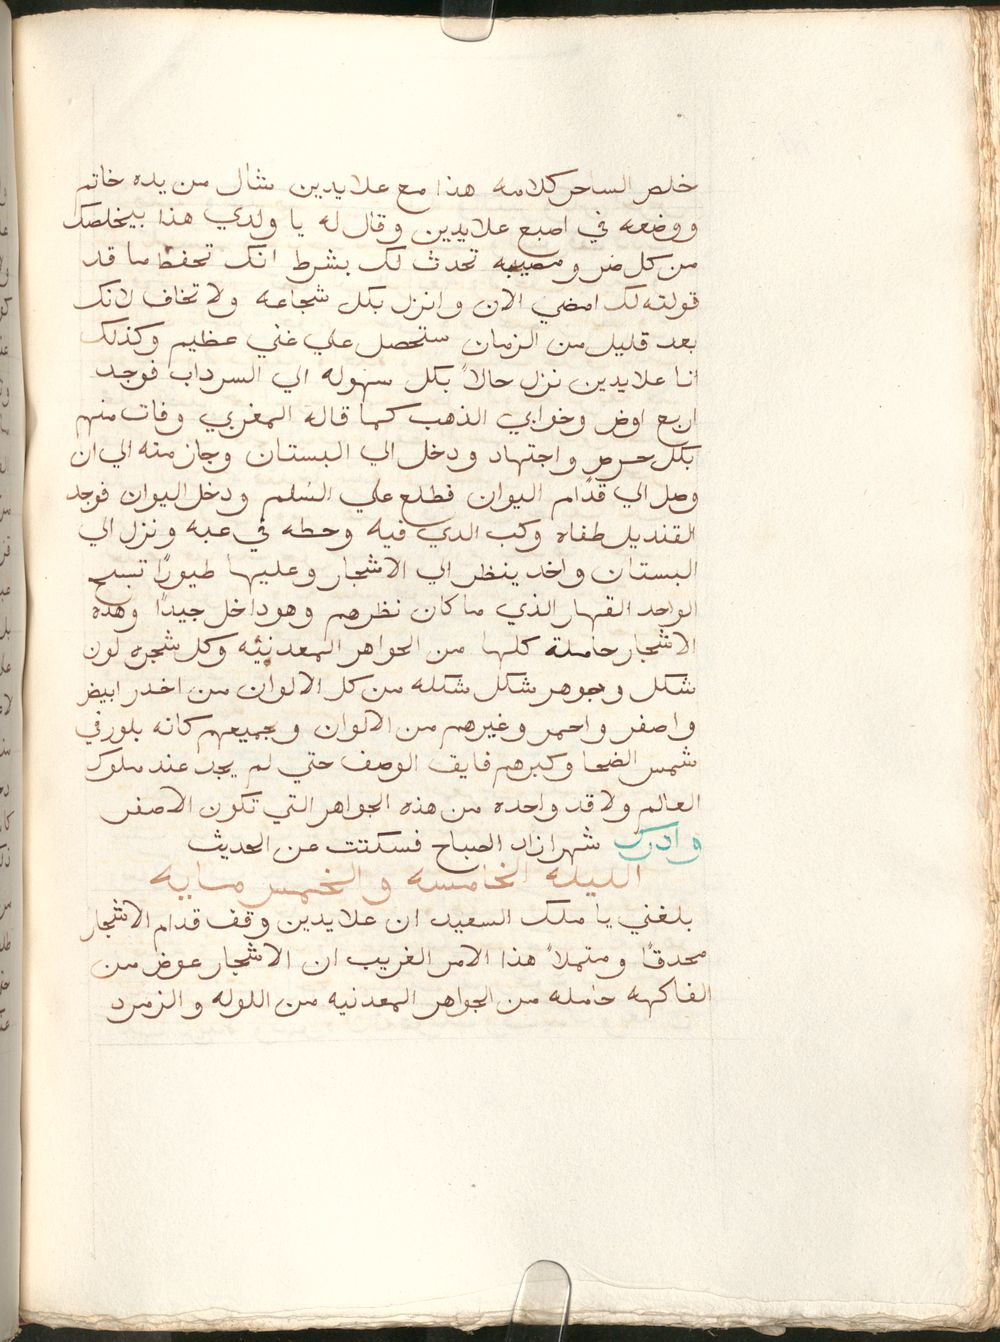 خلص الساحر كلامه هذا مع علايدين شال من يده خاتم
ووضعه في اصبع علايدين وقال له يا ولدي هذا بيخلصك
من كل ضر ومصيبه تحدث لك بشرط انك تحفظ ما قد
قولته لك امضي الان وانزل بكل شجاعه ولا تخاف لانك
بعد قليل من الزمان ستحصل علي غني عظيم وكذلك
انا علايدين نزل حالاً بكل سهوله الي السرداب فوجد
اربع اوض وخوابي الذهب كما قاله المغربي وفات منهم
بكل حرص واجتهاد ودخل الي البستان وجاز منه الي ان
وصل الي قدام اليوان فطلع علي السُلم ودخل اليوان فوجد
القنديل طفاه وكب الدي فيه وحطه في عبه ونزل الي
البستان واخد ينظر الي الاشجار وعليها طيورًا تسبح
الواحد القهار الذي ما كان نظرهم وهو داخل جيدًا وهده
الاشجار حاملة كلها من الجواهر المعدنيّه وكل شجره لون
شكل وجوهر شكل شكله من كل الالوان من اخدر ابيض
واصفر واحمر وغيرهم من الالوان وجميعهم كانه بلور في
شمس الضحا وكبرهم فايق الوصف حتي لم يجد عند ملوك
العالم ولا قد واحده من هذه الجواهر التي تكون الاصفر
وادرك شهرازاد الصباح فسكتت عن الحديث
الليله الخامسه والخمس مايه
بلغني يا ملك السعيد ان علايدين وقف قدام الاشجار
محدقًا ومتملاً هذا الامر الغريب ان الاشجار عوض من
الفاكهه حامله من الجواهر المعدنيه من اللوله والزمرد